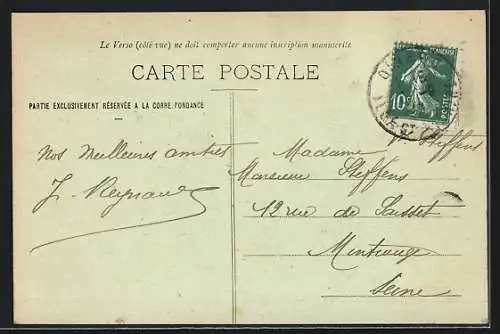 Le Verso (côté vue) ne doit comporter aucune inscription manuscrite
CARTE POSTALE
PARTIE EXCLUSIVEMENT RÉSERVÉE A LA CORRESPONDANCE
Nos meilleures amitiés
10c
POSTES
Steffens
Madame
Monsieur Steffens
12 rue de Sausset
Montrouge
Seine